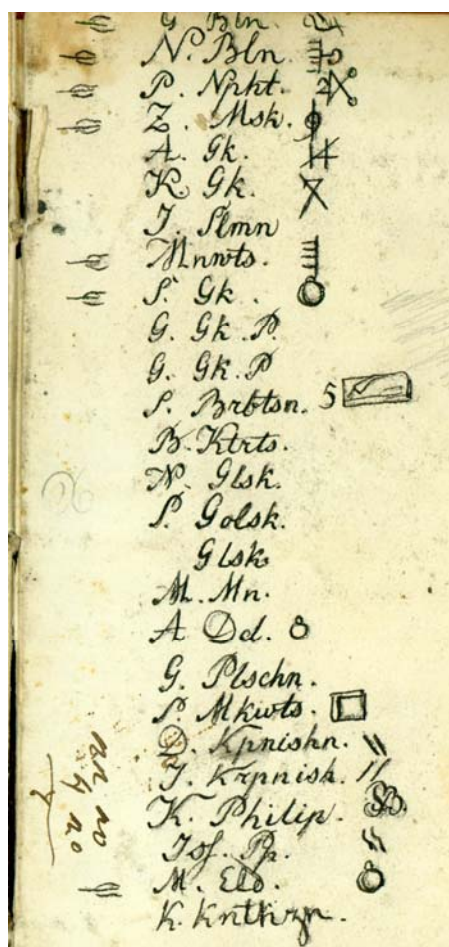 G. Bln 24
N. Bln
P. Npkt. 2
Z. Msk.
A. Gk.
K. Gk.
J. Slmn
Mnwts.
S. Gk.
G. Gk. P.
G. Gk. P
S. Brbtsn. 5
B. Ktrts.
N. Glsk.
P. Golsk.
Glsk
M. Mn.
A Dd. 8
G. Plschn.
P. Mkwts.
D. Kpnishn. "
J. Krpnish. "
K. Philip.
Jos. Pp. "
M. Elo.
K. Knthzn.